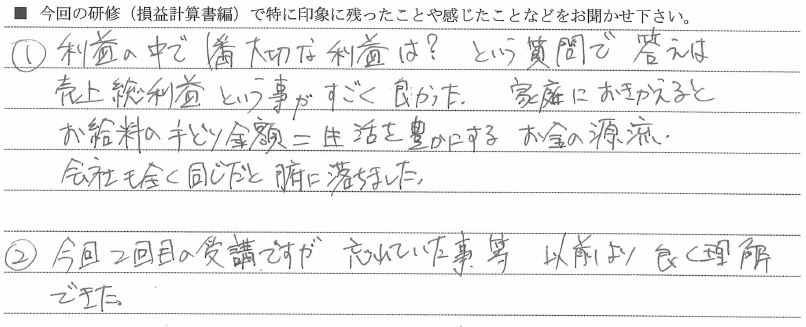 ■ 今回の研修（損益計算書編）で特に印象に残ったことや感じたことなどをお聞かせ下さい。
① 利益の中で1番大切な利益は？ という質問で答えは
売上総利益という事がすごく良かった. 家庭におきかえると
お給料の手どり金額＝生活を豊かにするお金の源流.
会社も全く同じだと腑に落ちました.
② 今回2回目の受講ですが 忘れていた事等 以前より良く理解
できた.